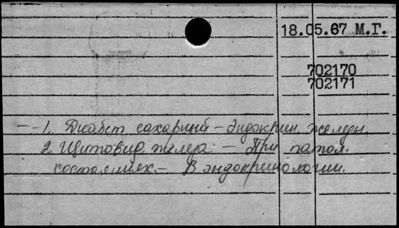 18.05.67 М.Г.
702170
702171
1. Диабет сахарный - Эндокрин. желез.
2. Щитовид. железа - При патол.
состояниях. - В эндокринологии.